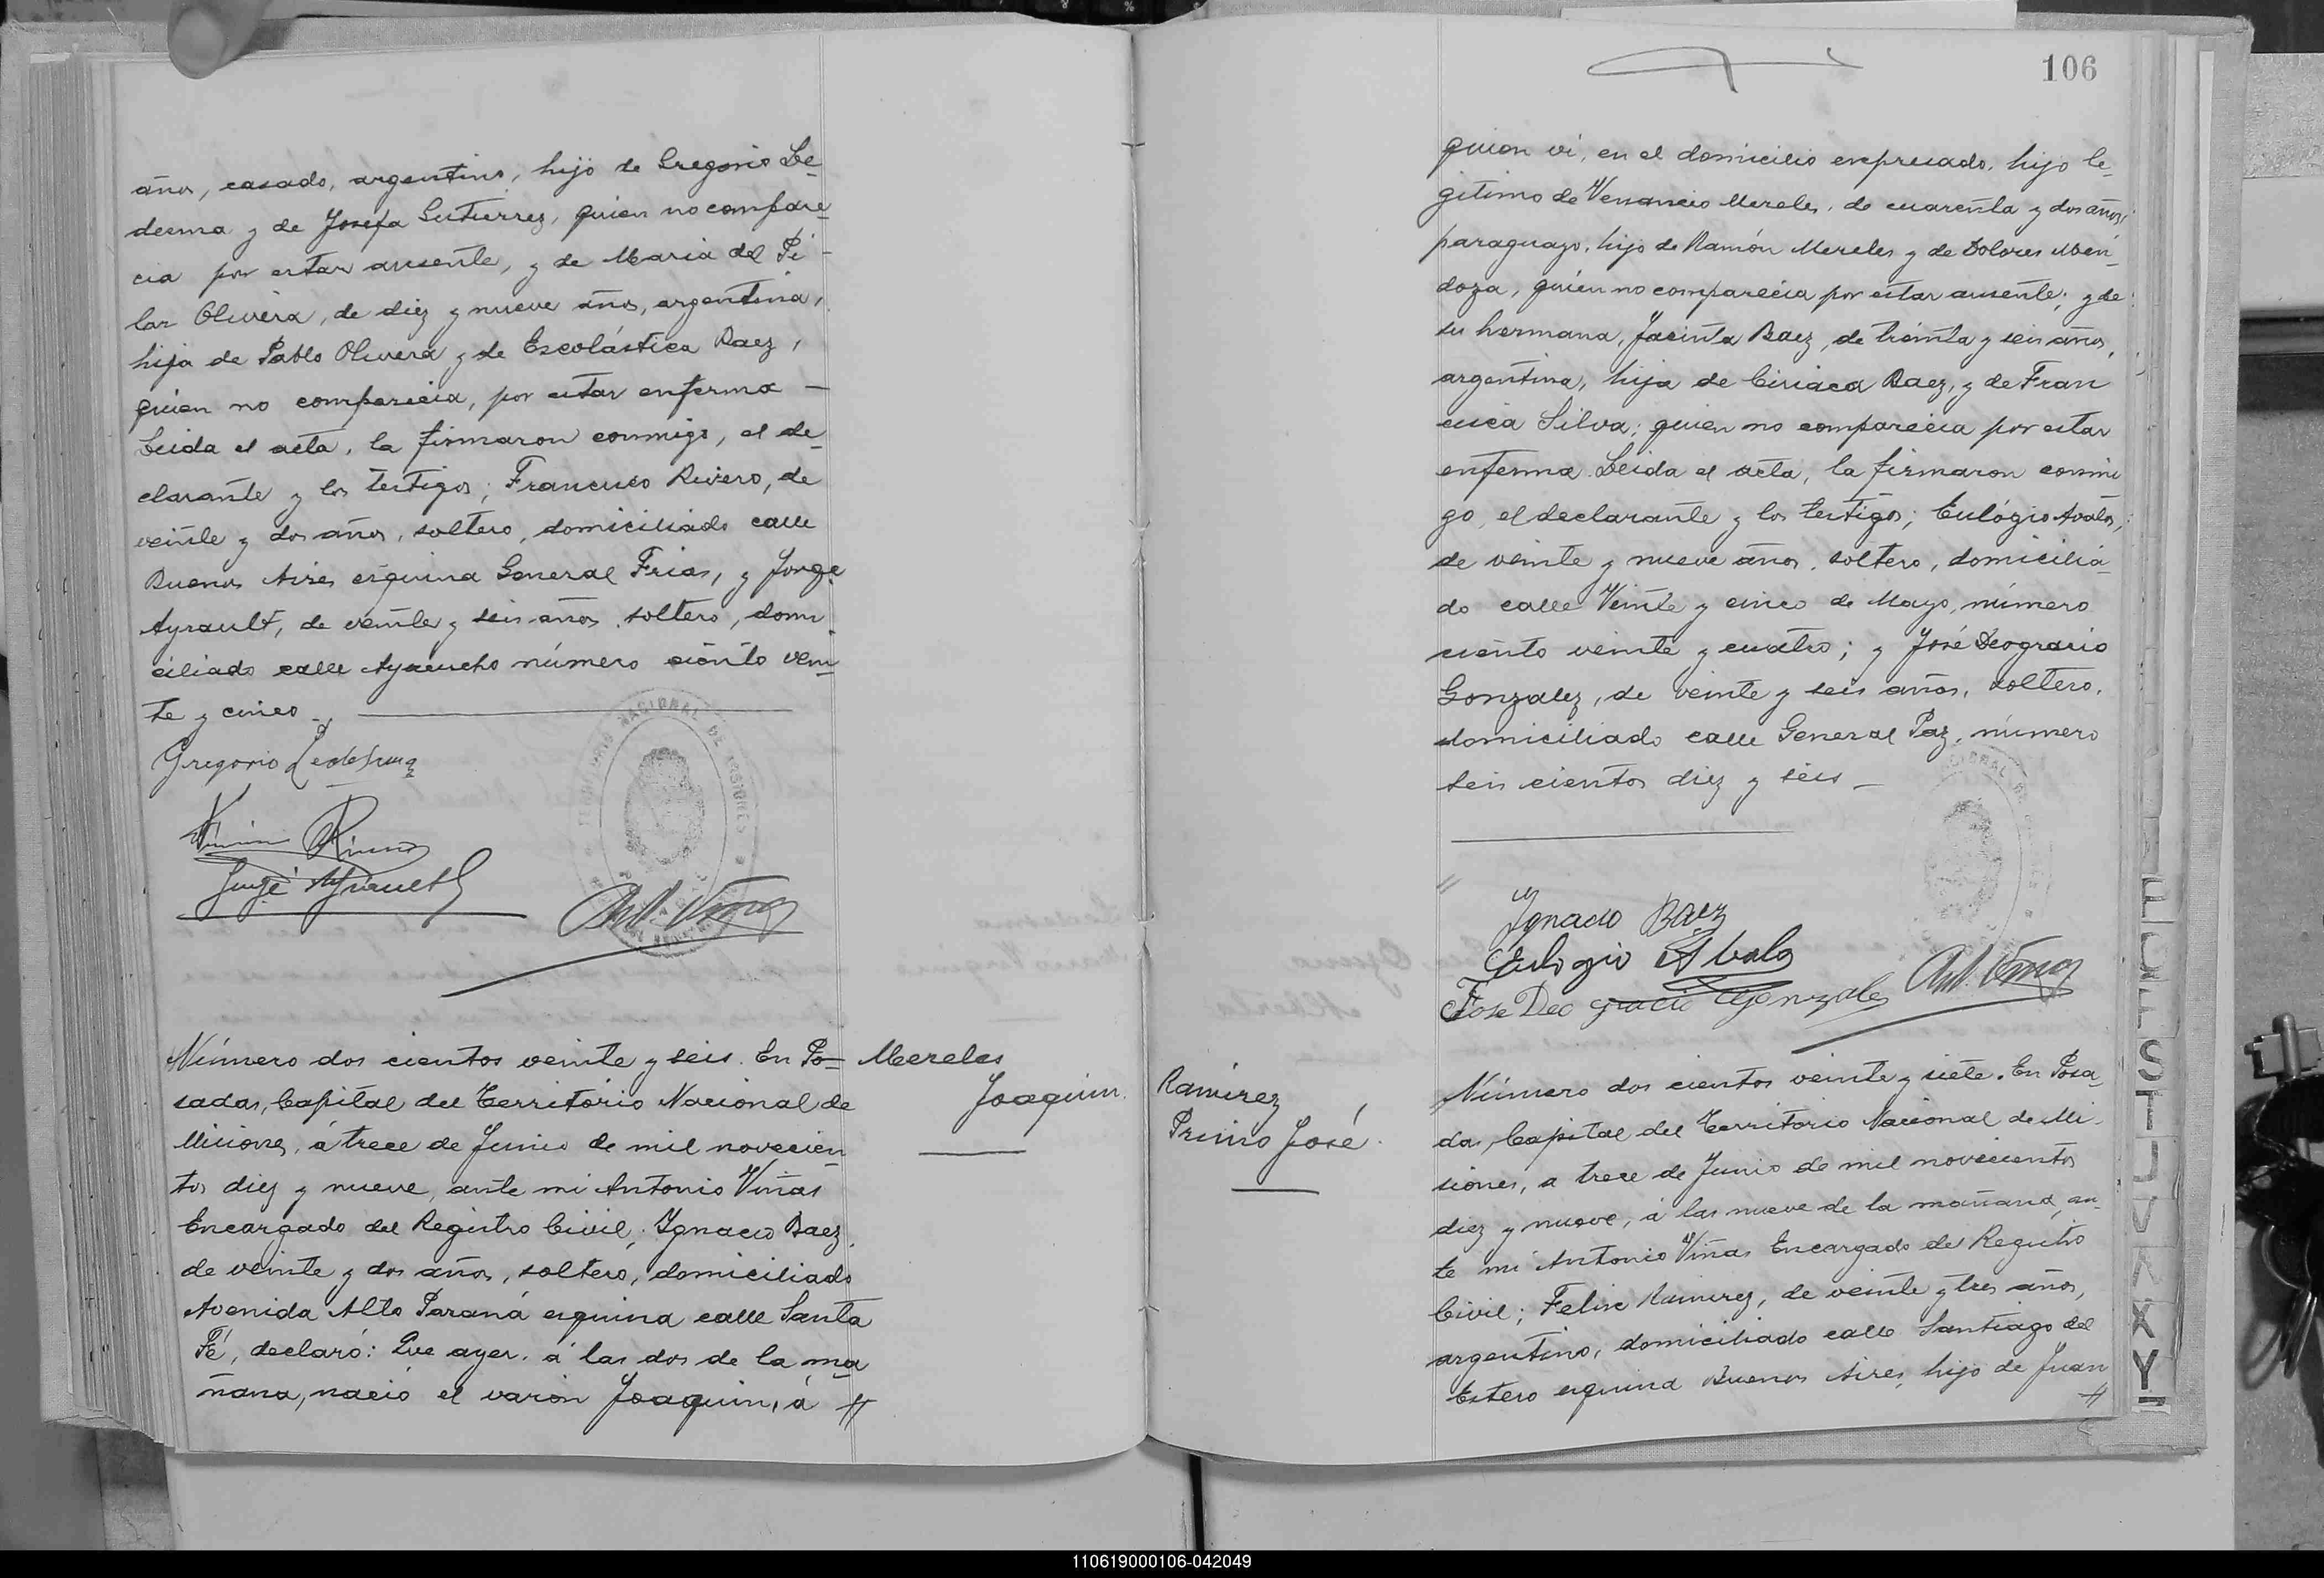 años, casado, argentino, hijo de Gregorio Le-
desma y de Josefa Gutierrez, quien no compare-
cia por estar ausente, y de Maria del Pi-
lar Olivera, de diez y nueve años, argentina,
hija de Pablo Olivera y de Escolástica Baez,
quien no comparecia, por estar enferma —
Leida el acta, la firmaron conmigo, el de-
clarante y los testigos; Francisco Rivero, de
veinte y dos años, soltero, domiciliado calle
Buenos Aires esquina General Frias, y Jorge
Ayrault, de veinte y seis años, soltero, domi
ciliado calle Ayacucho número ciento vein-
te y cinco —
Gregorio Ledesma
Jorge Ayrault
Número dos cientos veinte y seis. En Po-
sadas, Capital del Territorio Nacional de
Misiones, á trece de Junio de mil novecien-
tos diez y nueve, ante mi Antonio Viñas
Encargado del Registro Civil; Ygnacio Baez,
de veinte y dos años, soltero, domiciliado
Avenida Alto Paraná esquina calle Santa
Fé, declaró: Que ayer, á las dos de la ma-
ñana, nació el varón Joaquin, á //
Mereles
Joaquin
106
quien vi, en el domicilio expresado, hijo le-
gitimo de Venancio Mereles, de cuarenta y dos años,
paraguayo, hijo de Ramón Mereles y de Dolores Men-
doza, quién no comparecia por estar ausente; y de
su hermana, Jacinta Baez, de treinta y seis años,
argentina, hija de Ciriaca Baez, y de Fran
cisca Silva; quien no comparecia por estar
enferma. Leida el acta, la firmaron conmi
go, el declarante y los testigos; Eulógio Avalos,
de veinte y nueve años, soltero, domicilia-
do calle Veinte y cinco de Mayo, número
ciento veinte y cuatro; y José Deogracio
Gonzalez, de veinte y seis años, soltero,
domiciliado calle General Paz, número
seis cientos diez y seis —
Ygnacio Baez
Eulogio Abalo
Jose Deo gracio Gonzales
Ramirez
Primo José
Número dos cientos veinte y siete. En Posa-
das, Capital del Territorio Nacional de Mi-
siones, a trece de Junio de mil novecientos
diez y nueve, á las nueve de la mañana, an-
te mi Antonio Viñas Encargado del Registro
Civil; Felix Ramirez, de veinte y tres años,
argentino, domiciliado calle Santiago del
Estero esquina Buenos Aires, hijo de Juan
//
S
T
U
V
X
Y
110619000106-042049